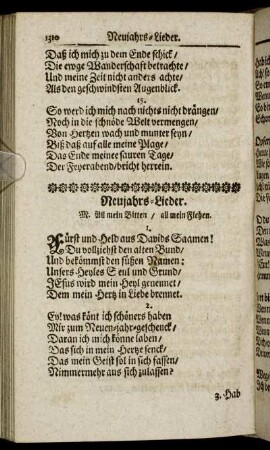 1310 Neujahrs-Lieder.
Daß ich mich zu dem Ende schick/
Die ewge Wanderschaft betrachte/
Und meine Zeit nicht anders achte/
Als den geschwindsten Augenblick.
15.
So werd ich mich nach nichts nicht drängen/
Noch in die schnöde Welt vermengen/
Von Hertzen wach und munter seyn/
Biß daß auf alle meine Plage/
Das Ende meiner sauren Tage/
Der Feyerabend/bricht herrein.
Neujahrs-Lieder.
M. All mein Bitten / all mein Flehen.
1.
Fürst und Held aus Davids Saamen!
Du vollziehst den alten Bund/
Und bekömmst den süßen Namen:
Unsers Heyles Seul und Grund/
JEsus wird mein Heyl genennet/
Dem mein Hertz in Liebe brennet.
2.
Ey! was könt ich schöners haben
Mir zum Neuen-jahr-geschenck/
Daran ich mich könne laben/
Das sich in mein Hertze senck/
Das mein Geist sol in sich fassen/
Nimmermehr aus sich zulassen/
3. Hab